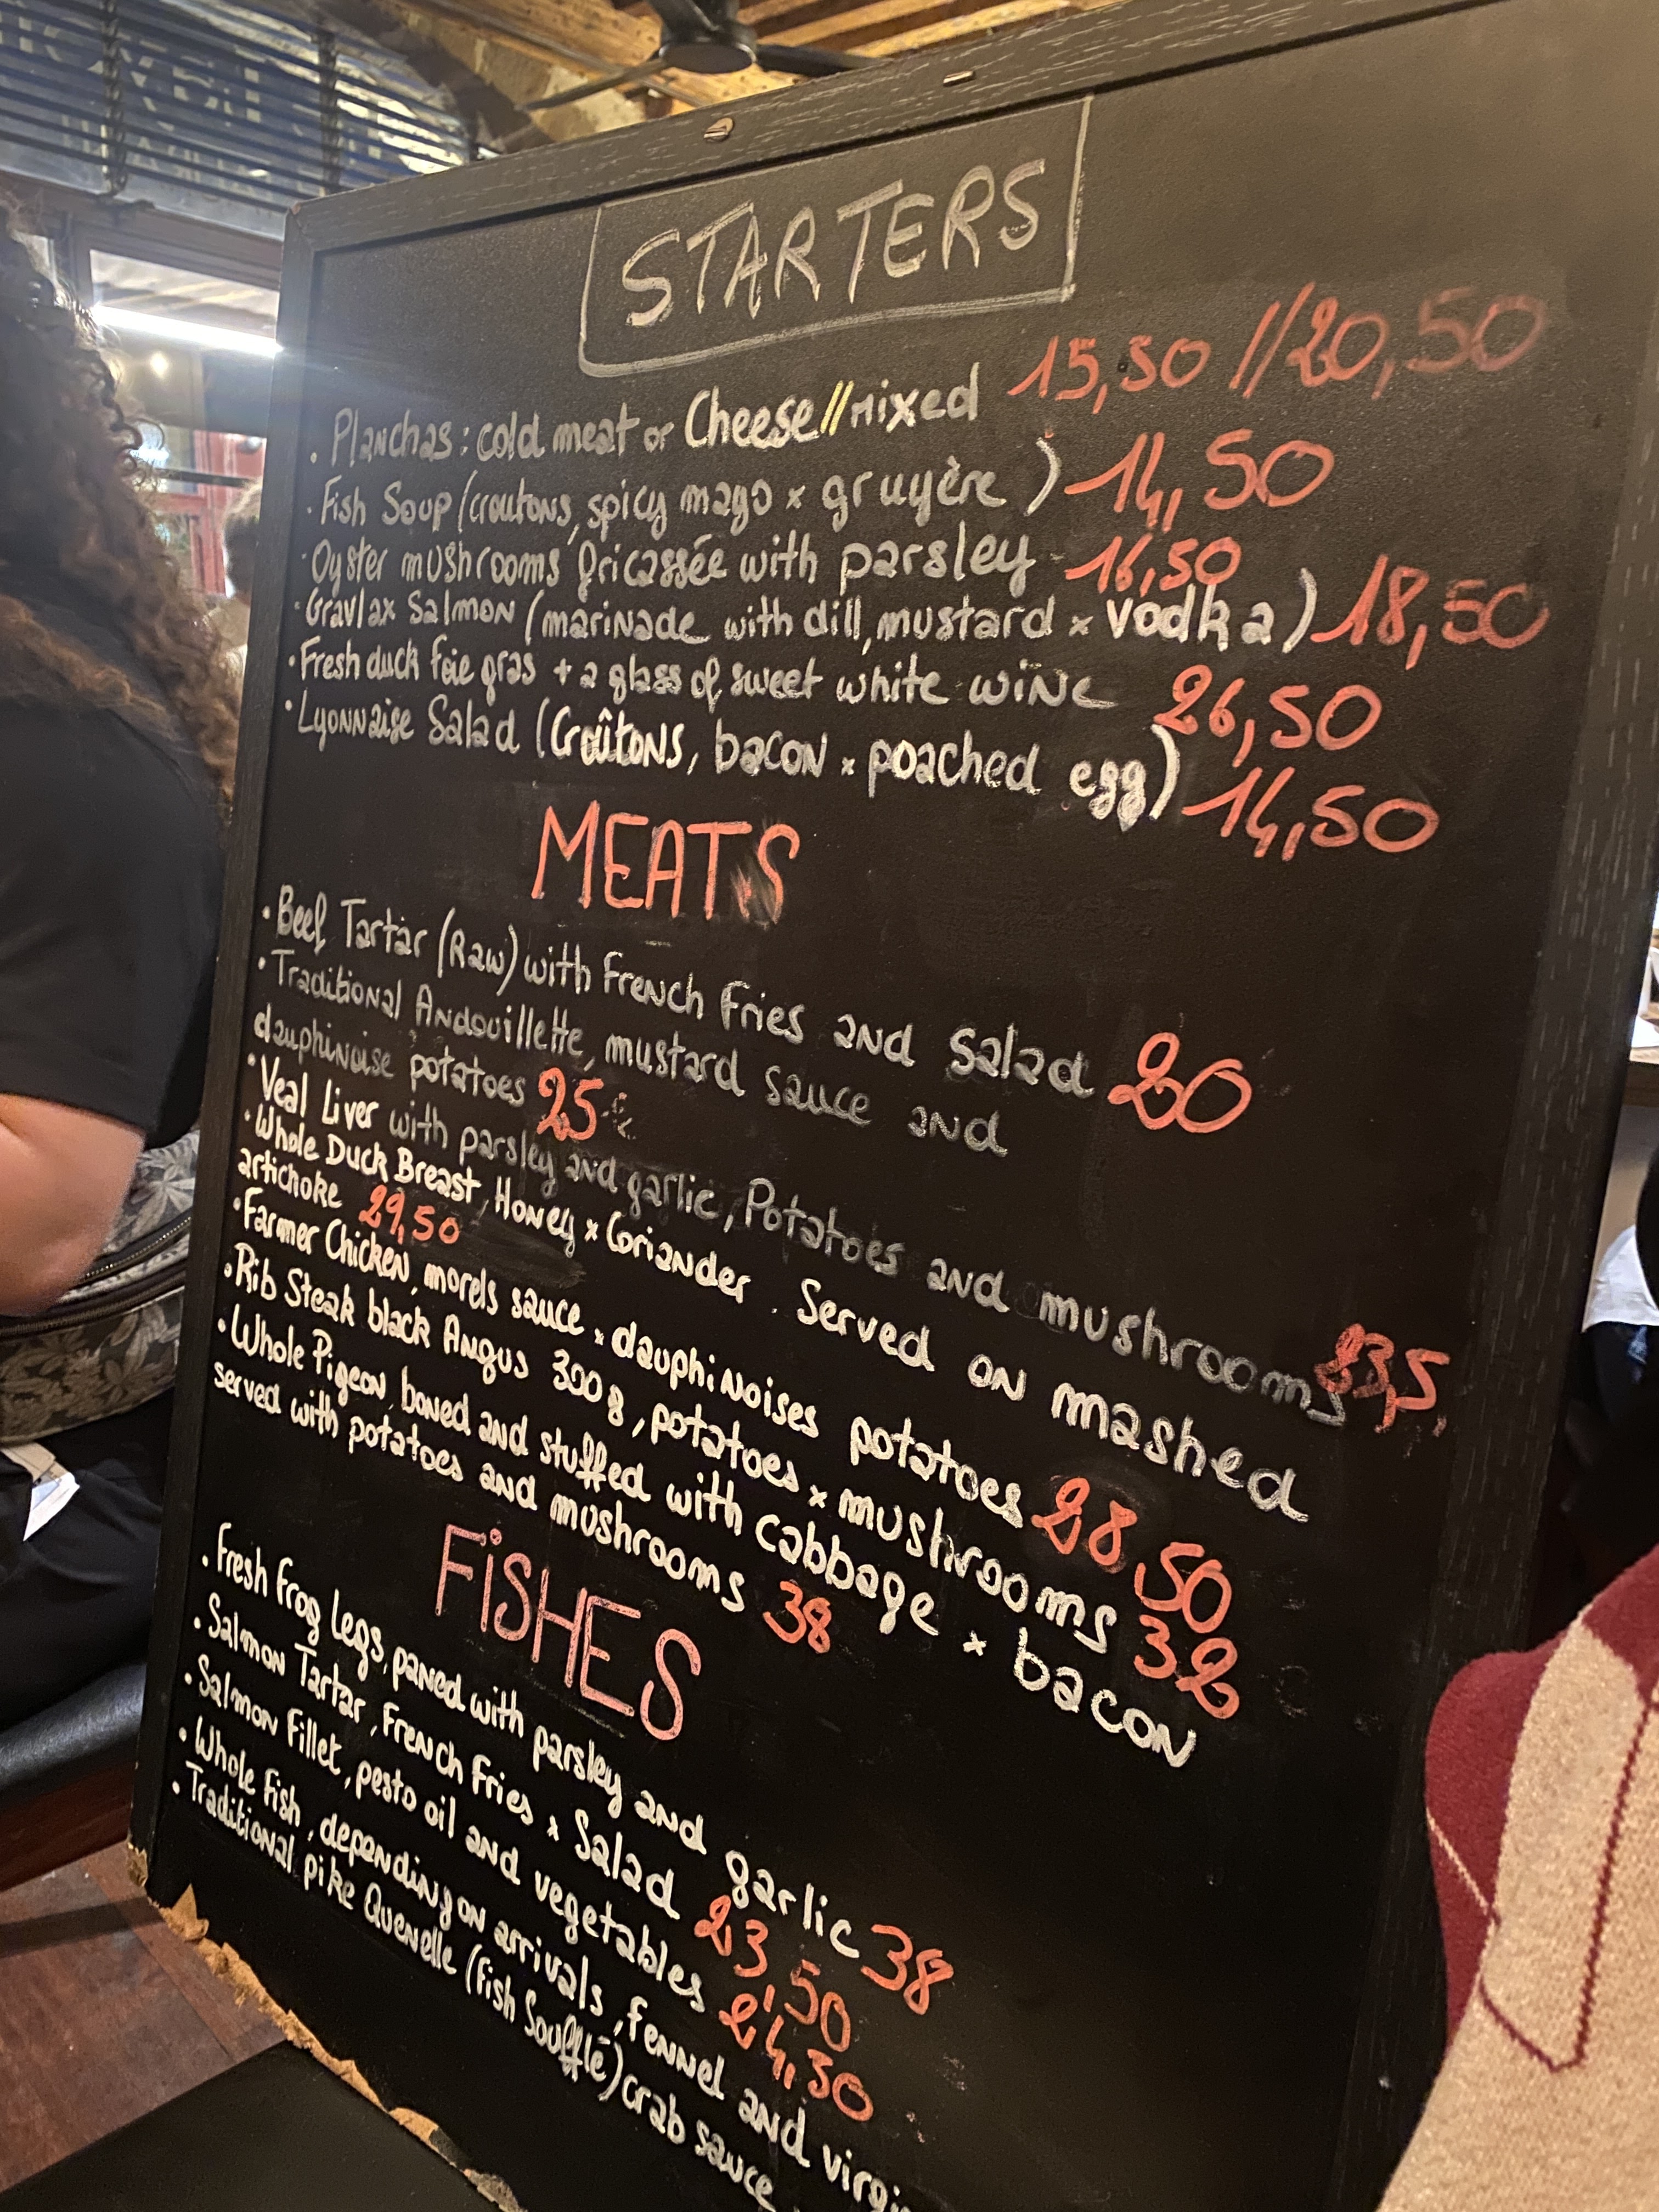 STARTERS
. Planchas: cold meat or Cheese//mixed 15,50 //20,50
. Fish Soup (croutons, spicy mayo x gruyère) 14,50
. Oyster mushrooms fricassée with parsley 16,50
. Gravlax Salmon (marinade with dill, mustard x vodka) 18,50
. Fresh duck foie gras + a glass of sweet white wine 26,50
. Lyonnaise Salad (Croûtons, bacon x poached egg) 14,50
MEATS
. Beef Tartar (Raw) with French Fries and Salad 20
. Traditional Andouillette, mustard sauce and
dauphinoise potatoes 25 €
. Veal Liver with parsley and garlic, Potatoes and mushrooms 23,5
. Whole Duck Breast, Honey x Coriander. Served on mashed
artichoke 29,50
. Farmer Chicken, morels sauce x dauphinoises potatoes 28,50
. Rib Steak black Angus 300g, potatoes x mushrooms 32
. Whole Pigeon, boned and stuffed with cabbage x bacon
served with potatoes and mushrooms 38
FiSHES
. Fresh Frog Legs, paned with parsley and garlic 38
. Salmon Tartar, French Fries x Salad 23,50
. Salmon Fillet, pesto oil and vegetables 24,50
. Whole Fish, depending on arrivals, fennel and
. Traditional pike Quenelle (Fish Soufflé) crab sauce